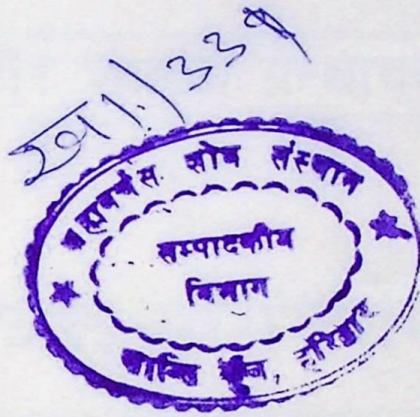 ख।।/३३१
ब्रह्मवर्चस शोध संस्थान
सम्पादकीय
विभाग
शान्ति कुंज, हरिद्वार